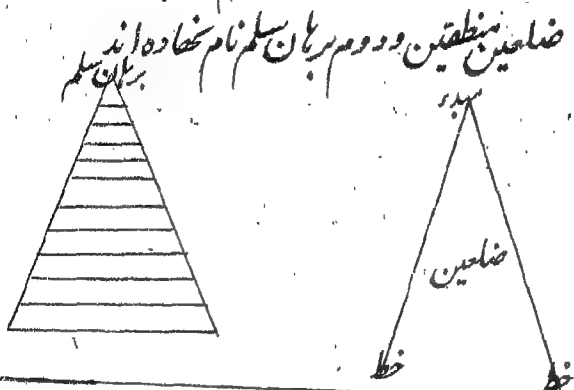 ضلعین منطقتین و دوم برهان سلم نام نهاده اند
برهان سلم
مبدء
ضلعین
خط
خط